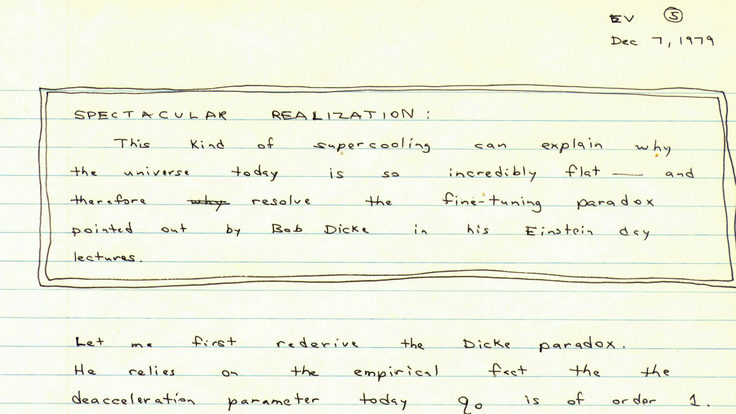 EV 5
Dec 7, 1979
SPECTACULAR REALIZATION:
This kind of supercooling can explain why
the universe today is so incredibly flat — and
therefore why resolve the fine-tuning paradox
pointed out by Bob Dicke in his Einstein day
lectures.
Let me first rederive the Dicke paradox.
He relies on the empirical fact the the
deacceleration parameter today q₀ is of order 1.